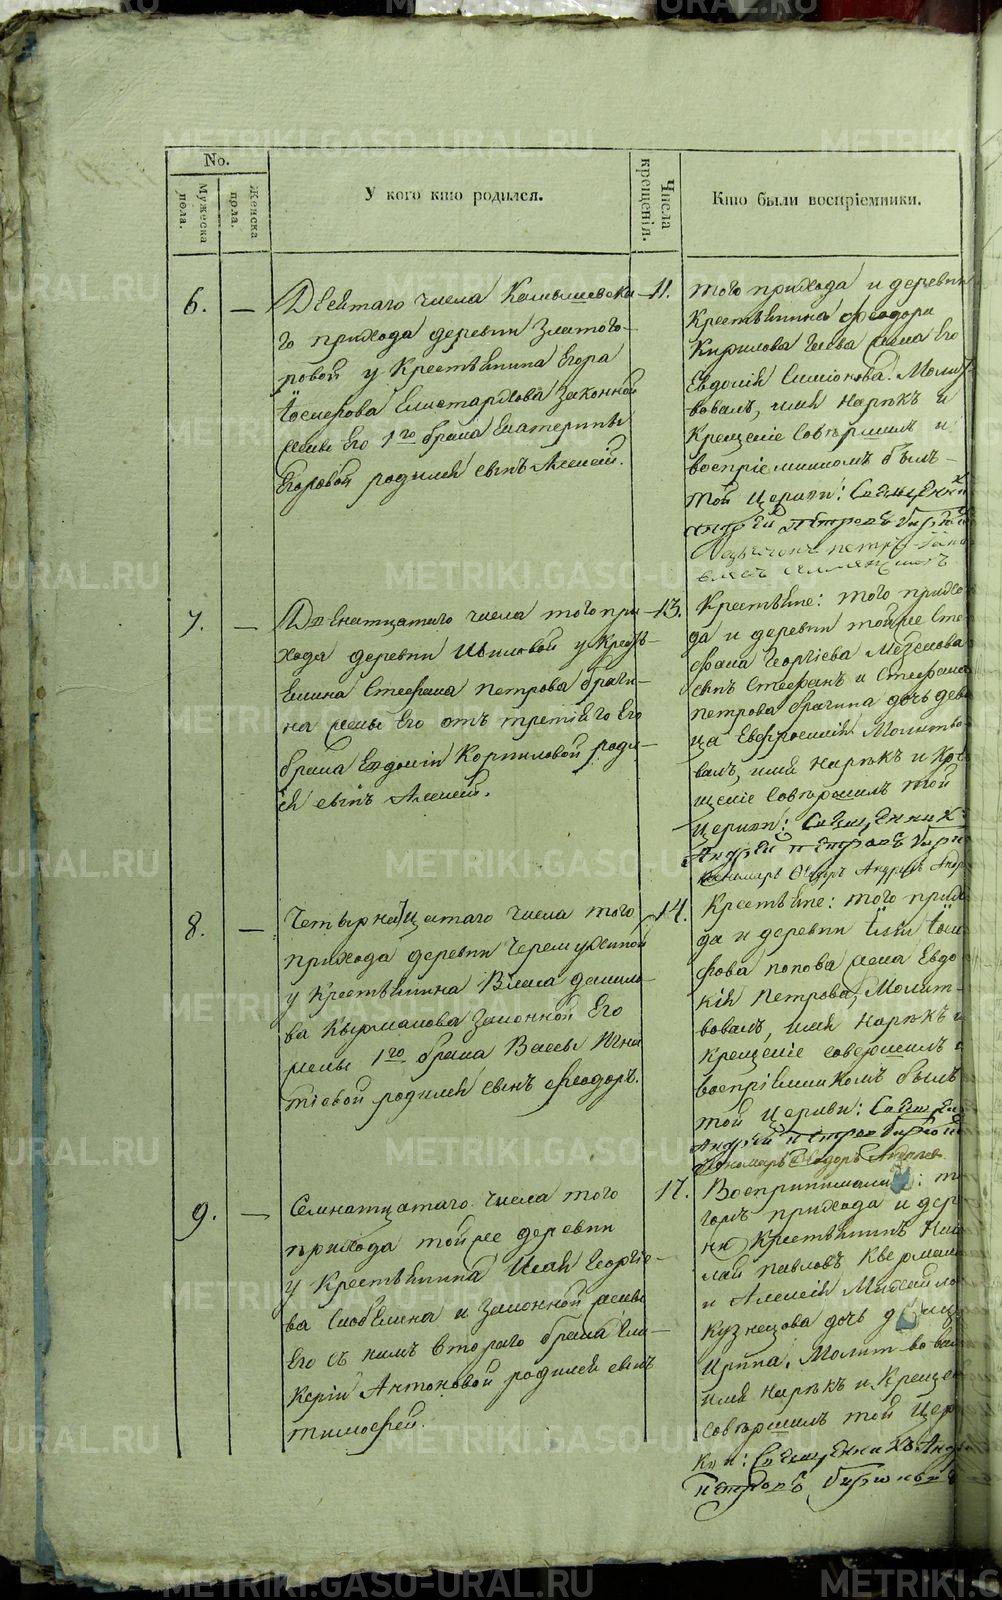 METRIKI.GASO-URAL.RU
No.
Мужеска пола.
Женска пола.
У кого кто родился.
Числа крещенія.
Кто были воспріемники.
6. —
Десятаго числа Камышевска-
го прихода деревни Златого-
ровой у Крестьянина Егора
законной
жены Его 1го брака Екатерины
Егоровой родился сынъ Алексей.
11.
того прихода и деревни
Крестьянина Феодора
Кирилова жена Его
Евдокия Симионова. Молит
вовалъ, имя Нарѣкъ и
Крещеніе Совѣршилъ и
воспріемникомъ былъ
той Церкви: Священник
Андрей Петровъ
7. —
Двенатцатаго числа того при-
хода деревни Шиловой у Крест
янина Стефана Петрова Браги-
на жены Его отъ третіего Его
брака Евдокіи Корниловой роди-
ся сынъ Алексей.
13.
Крестьяне: того прихо
да и деревни тойже Сте
фана Георгіева
сынъ Стефанъ и Стефана
Петрова Брагина дочь деви
ца Евфросинія Молитво
валъ, имя Нарѣкъ и Кре
щеніе Совѣршилъ той
Церкви: Священникъ
Андрей Петровъ
Пономарь Феодоръ Андреевъ
8. —
Четырнатцатаго числа того
прихода деревни Черемухиной
у Крестьянина Власа Данило-
ва законной Его
жены 1го брака Вассы Игна
тіевой родился сынъ Феодоръ.
14.
Крестьяне: того прихо
да и деревни
Попова жена Евдо
кія Петрова, Молит-
вовалъ, имя Нарѣкъ и
Крещеніе совершилъ и
воспріемникомъ былъ
той Церкви: Священ
Андрей Петровъ
Пономарь Феодоръ Андреев
9. —
Семнатцатаго числа того
прихода тойже деревни
у Крестьянина Исая Георгіе-
ва и законной жены
Его съ нимъ втораго брака Гли-
керіи Антоновой родился сынъ
Тимофей.
17.
Воспринимали: то
гожъ прихода и дерев
ни Крестьянинъ Ник
лай Павловъ
и Алексія Михайло
Кузнецова дочь девица
Ирина. Молитвовал
имя Нарѣкъ и Крещен
Совѣршилъ той Цер
кви: Священникъ Андр
Петровъ